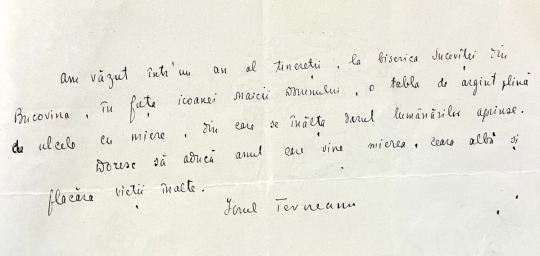 Am văzut într'un an al tinereții, la biserica Sucevitei din
Bucovina, în fața icoanei Maicii Domnului, o tabla de argint plină
de ulcele cu miere, din care se înălța darul lumânărilor aprinse.
Doresc să aducă anul care vine mierea, ceara albă și
flacăra vieții înalte.
Ionel Teodoreanu